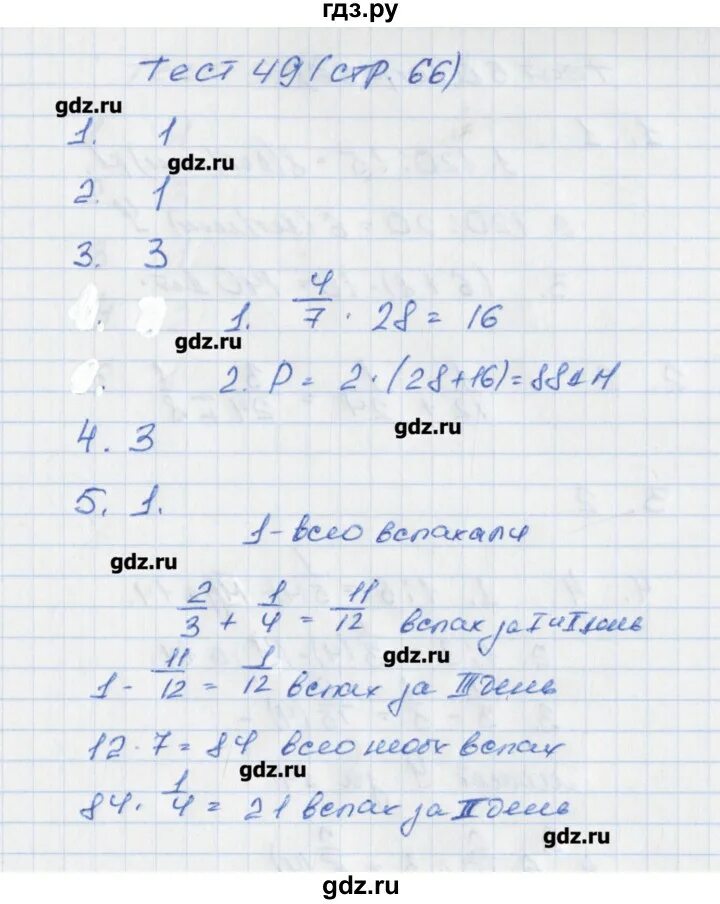 гдз.ру
Тест 49 (стр. 66)
gdz.ru
1. 1
gdz.ru
2. 1
3. 3
1. 4/7 · 28 = 16
gdz.ru
2. P = 2·(28+16)=88дм
gdz.ru
4. 3
5. 1.
1 - всго вспахали
gdz.ru
2/3 + 1/4 = 11/12 вспах за I и II день
gdz.ru
1 - 11/12 = 1/12 вспах за III день
12·7=84 всго вспах
gdz.ru
84·1/4=21 вспах за II день
gdz.ru
gdz.ru